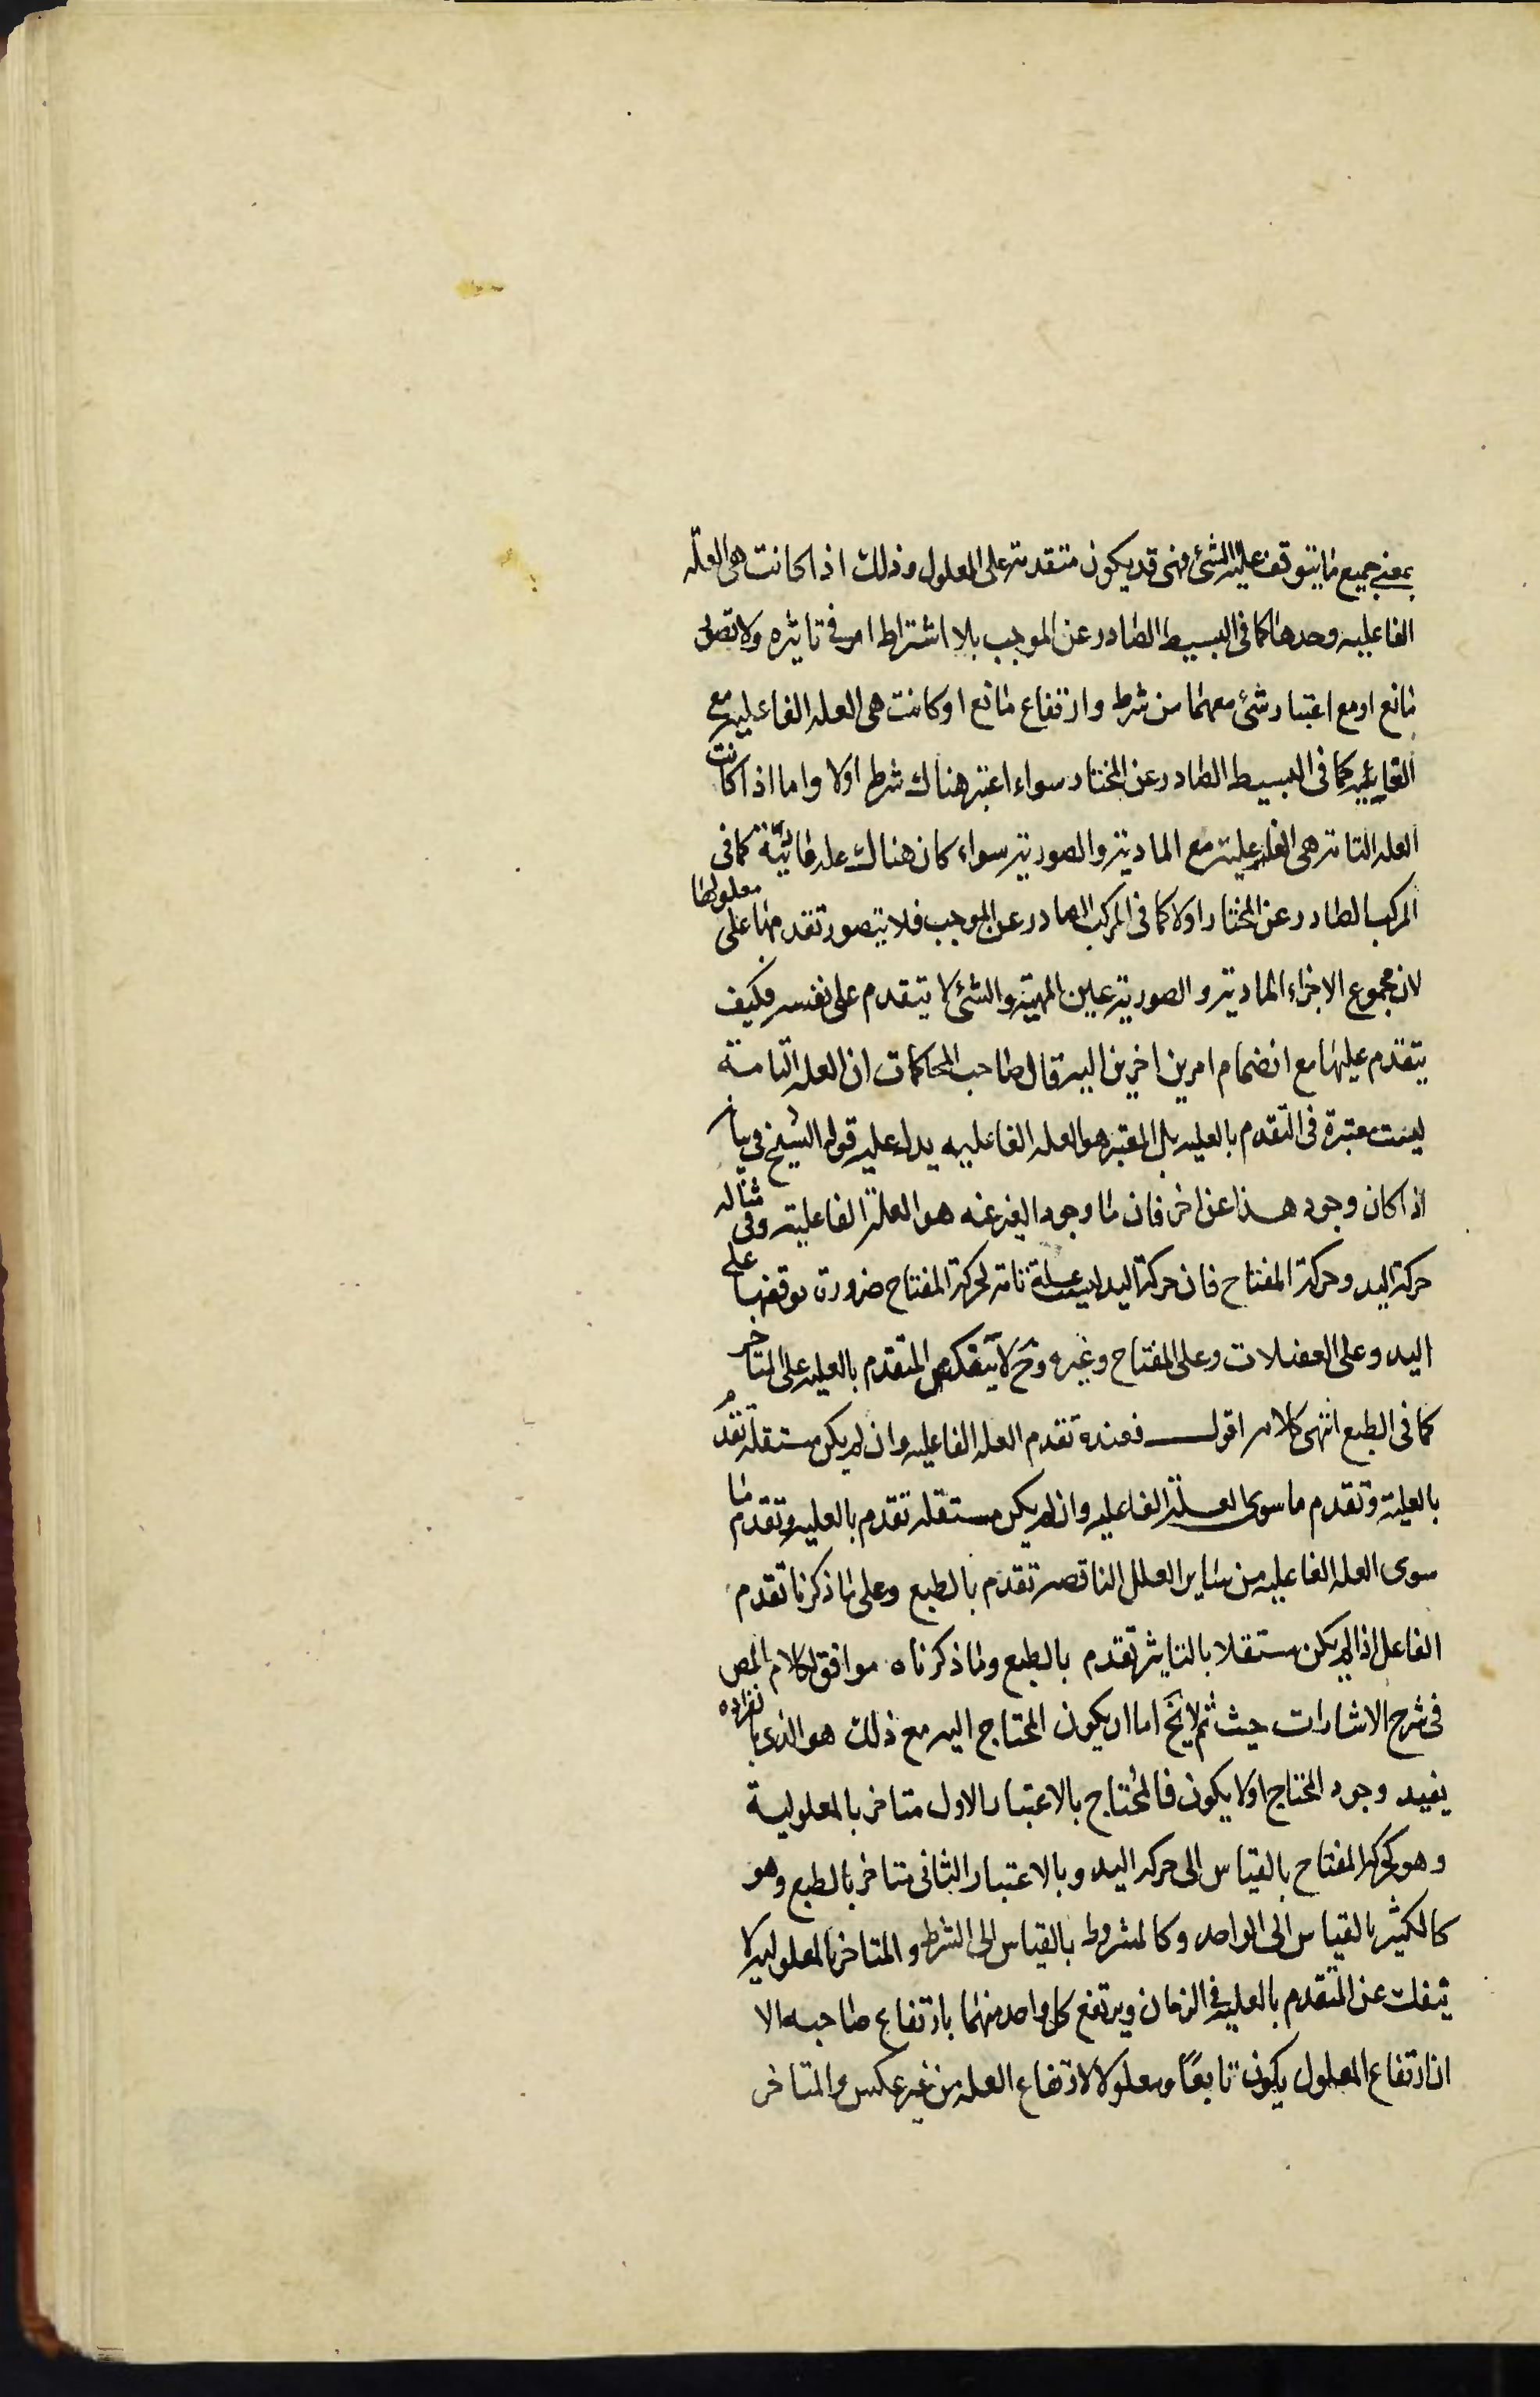 بمعنى جميع ما يتوقف عليه الشئ فهى قد يكون متقدمة على المعلول وذلك اذا كانت هى العلة
الفاعليه وحدها كما فى البسيط الصادر عن الموجب بلا اشتراط امر فى تاثيره ولا تصور
مانع او مع اعتبار شئ معهما من شرط وارتفاع مانع او كانت هى العله الفاعليه مع
الغائيه كما فى البسيط الصادر عن المختار سواء اعتبر هناك شرط اولا واما اذا كانت
العله التامة هى الفاعلية مع المادية والصورية سواء كان هناك علة غائيّة كما فى
المركب الصادر عن المختار اولا كما فى المركب الصادر عن الموجب فلا يتصور تقدمها على معلولها
لان مجموع الاجزاء المادية والصورية عين المهية والشئ لا يتقدم على نفسه فكيف
يتقدم عليها مع انضمام امرين اخرين اليه قال صاحب المحاكمات ان العله التامة
ليست معتبرة فى التقدم بالعليه بل المعتبر هو العله الفاعليه يدل عليه قول الشيخ فى بيانه
اذا كان وجود هذا عن اخر فان ما وجود الغير عنه هو العلة الفاعلية وفى مثاله
حركة اليد وحركة المفتاح فان حركة اليد ليست علة تامة لحركة المفتاح ضرورة توقفها على
اليد وعلى العضلات وعلى المفتاح وغيره وح لا ينفك المتقدم بالعليه على المتاخر
كما فى الطبع انتهى كلامه اقول فعنده تقدم العله الفاعليه وان لم يكن مستقلة تقدم
بالعلية وتقدم ما سوى العلة الفاعليه وان لم يكن مستقله تقدم بالعليه وتقدم ما
سوى العله الفاعليه من ساير العلل الناقصه تقدم بالطبع وعلى ما ذكرنا تقدم
الفاعل اذا لم يكن مستقلا بالتاثير تقدم بالطبع وما ذكرناه موافق لكلام المص
فى شرح الاشارات حيث ثم لا يخ اما ان يكون المحتاج اليه مع ذلك هو الذى بانفراده
يفيد وجود المحتاج اولا يكون فالمحتاج بالاعتبار الاول متاخر بالمعلولية
وهو كحركة المفتاح بالقياس الى حركة اليد وبالاعتبار الثانى متاخر بالطبع وهو
كالكثير بالقياس الى الواحد وكالمشروط بالقياس الى الشرط والمتاخر بالمعلوليه لا
ينفك عن المتقدم بالعليه فى الزمان ويرتفع كل واحد منهما بارتفاع صاحبه الا
ان ارتفاع المعلول يكون تابعًا ومعلولا لارتفاع العله من غير عكس والمتاخر